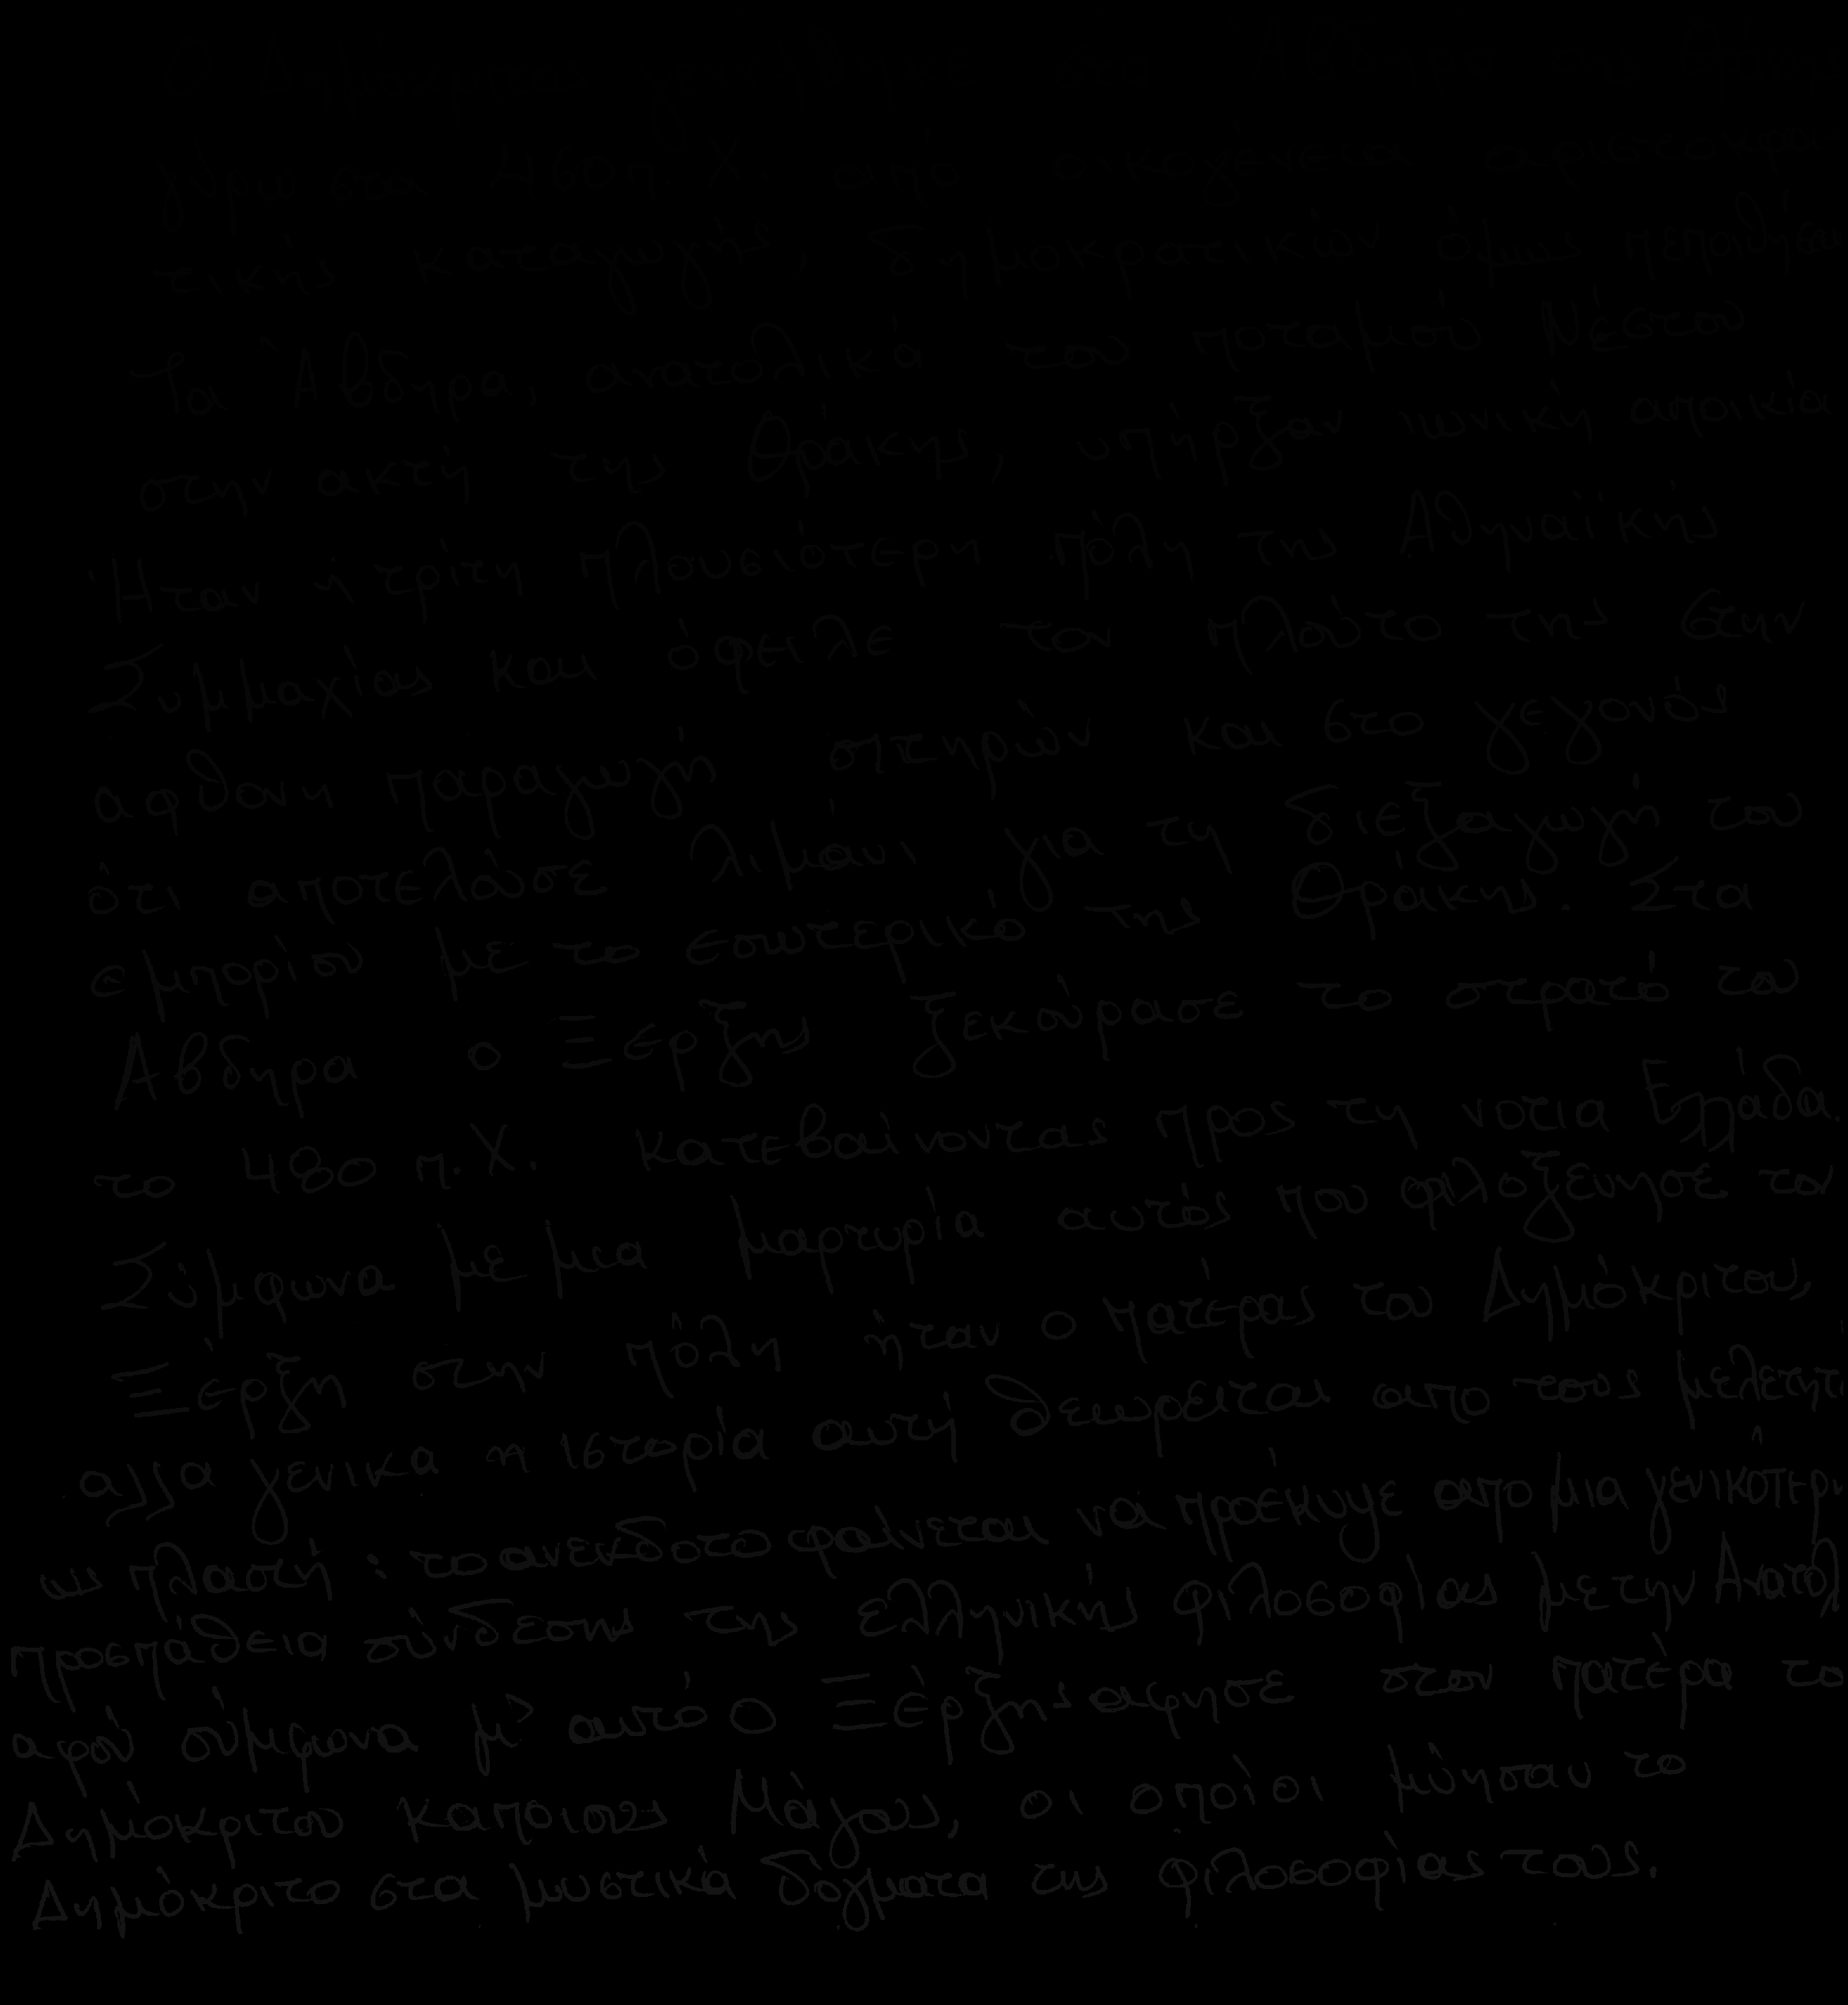 Ο Δημόκριτος γεννήθηκε στα Άβδηρα
γύρω στα 460 π.Χ. από οικογένεια αριστοκρα-
τικής καταγωγής, δημοκρατικών όμως πεποιθήσεων
Τα Άβδηρα, ανατολικά του ποταμού Νέστου
στην ακτή της Θράκης, υπήρξαν ιωνική αποικία
Ήταν ή τρίτη πλουσιότερη πόλη της Αθηναϊκής
Συμμαχίας και όφειλε τον πλούτο της στην
αφθονη παραγωγή σιτηρών και στο γεγονός
ότι αποτελούσε λιμάνι για τη διεξαγωγή του
εμπορίου με το εσωτερικό της Θράκης. Στα
Αβδηρα ο Ξερξης ξεκούρασε το στρατό του
το 480 π.Χ. κατεβαίνοντας προς τη νοτια Ελλάδα.
Σύμφωνα με μια μαρτυρία αυτός που φιλοξένησε τον
Ξέρξη στην πόλη ήταν ο πατέρας του Δημόκριτου,
αλλα γενικα η ιστορία αυτή θεωρείται απο τους μελετητ
ως πλαστή : το ανεκδοτο φαίνεται να προέκυψε απο μια γενικότερη
προσπάθεια σύνδεσης της ελληνικής φιλοσοφίας με την Ανατολ
αφού σύμφωνα μ' αυτό ο Ξέρξης αφησε στον πατέρα το
Δημόκριτου καποιους Μάγους, οι οποίοι μύησαν το
Δημόκριτο στα μυστικά δόγματα της φιλοσοφίας τους.